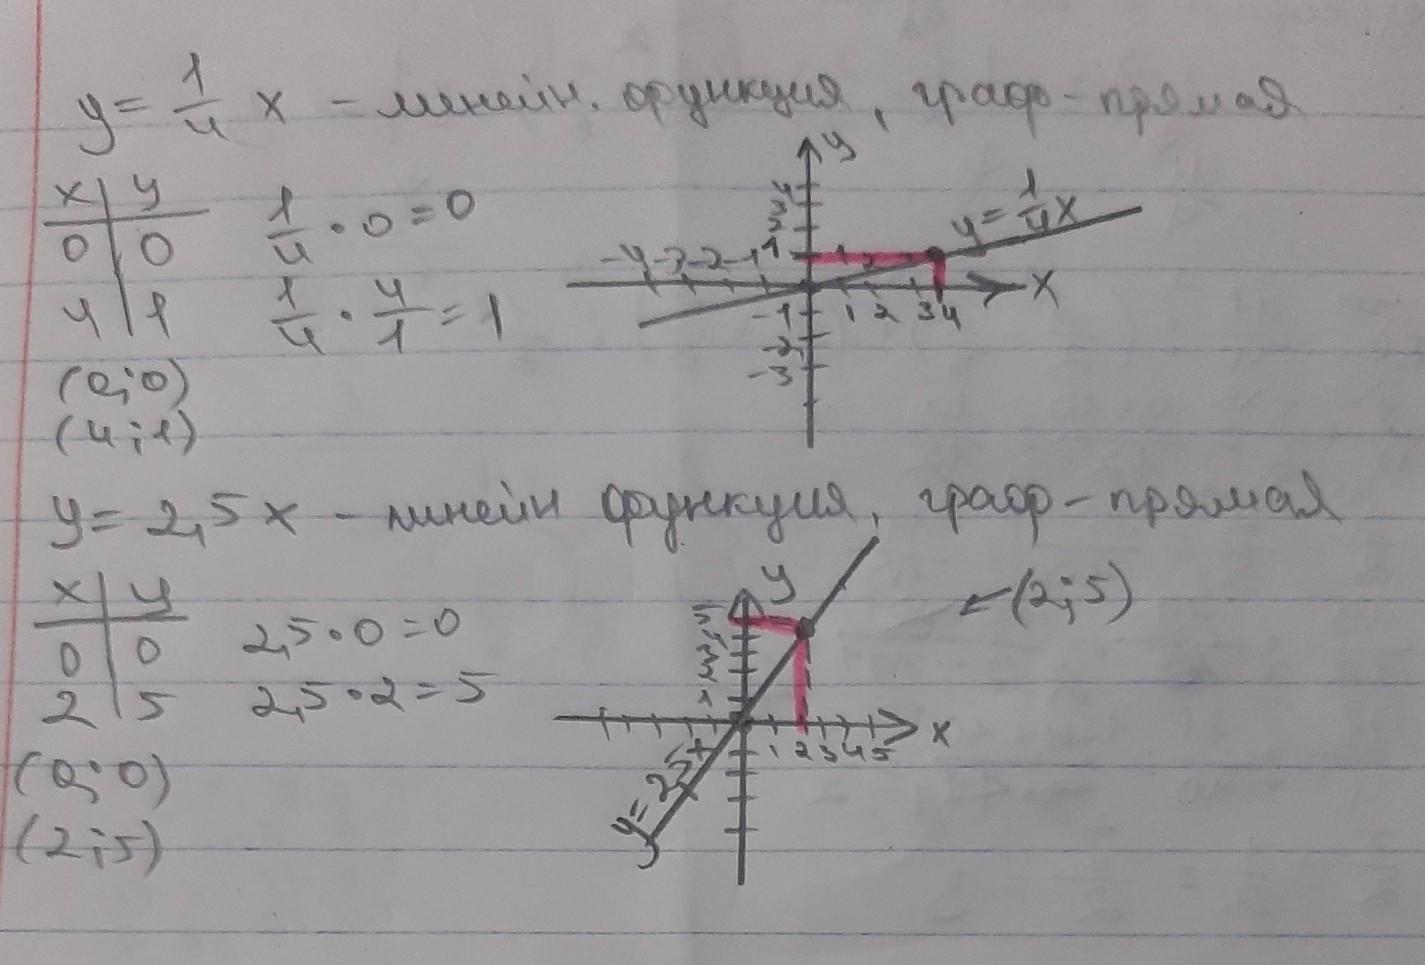 y = 1/4 x – линейн. функция, граф - прямая
x | y
0 | 0    1/4 · 0 = 0
4 | 1    1/4 · 4/1 = 1
(0;0)
(4;1)
y
4
3
2
1
-4 -3 -2 -1
1 2 3 4
x
-1
-2
-3
y = 1/4 x
y = 2,5x – линейн функция, граф - прямая
x | y
0 | 0    2,5 · 0 = 0
2 | 5    2,5 · 2 = 5
(0;0)
(2;5)
y
5
4
3
2
1
1 2 3 4 5
x
← (2;5)
y = 2,5x